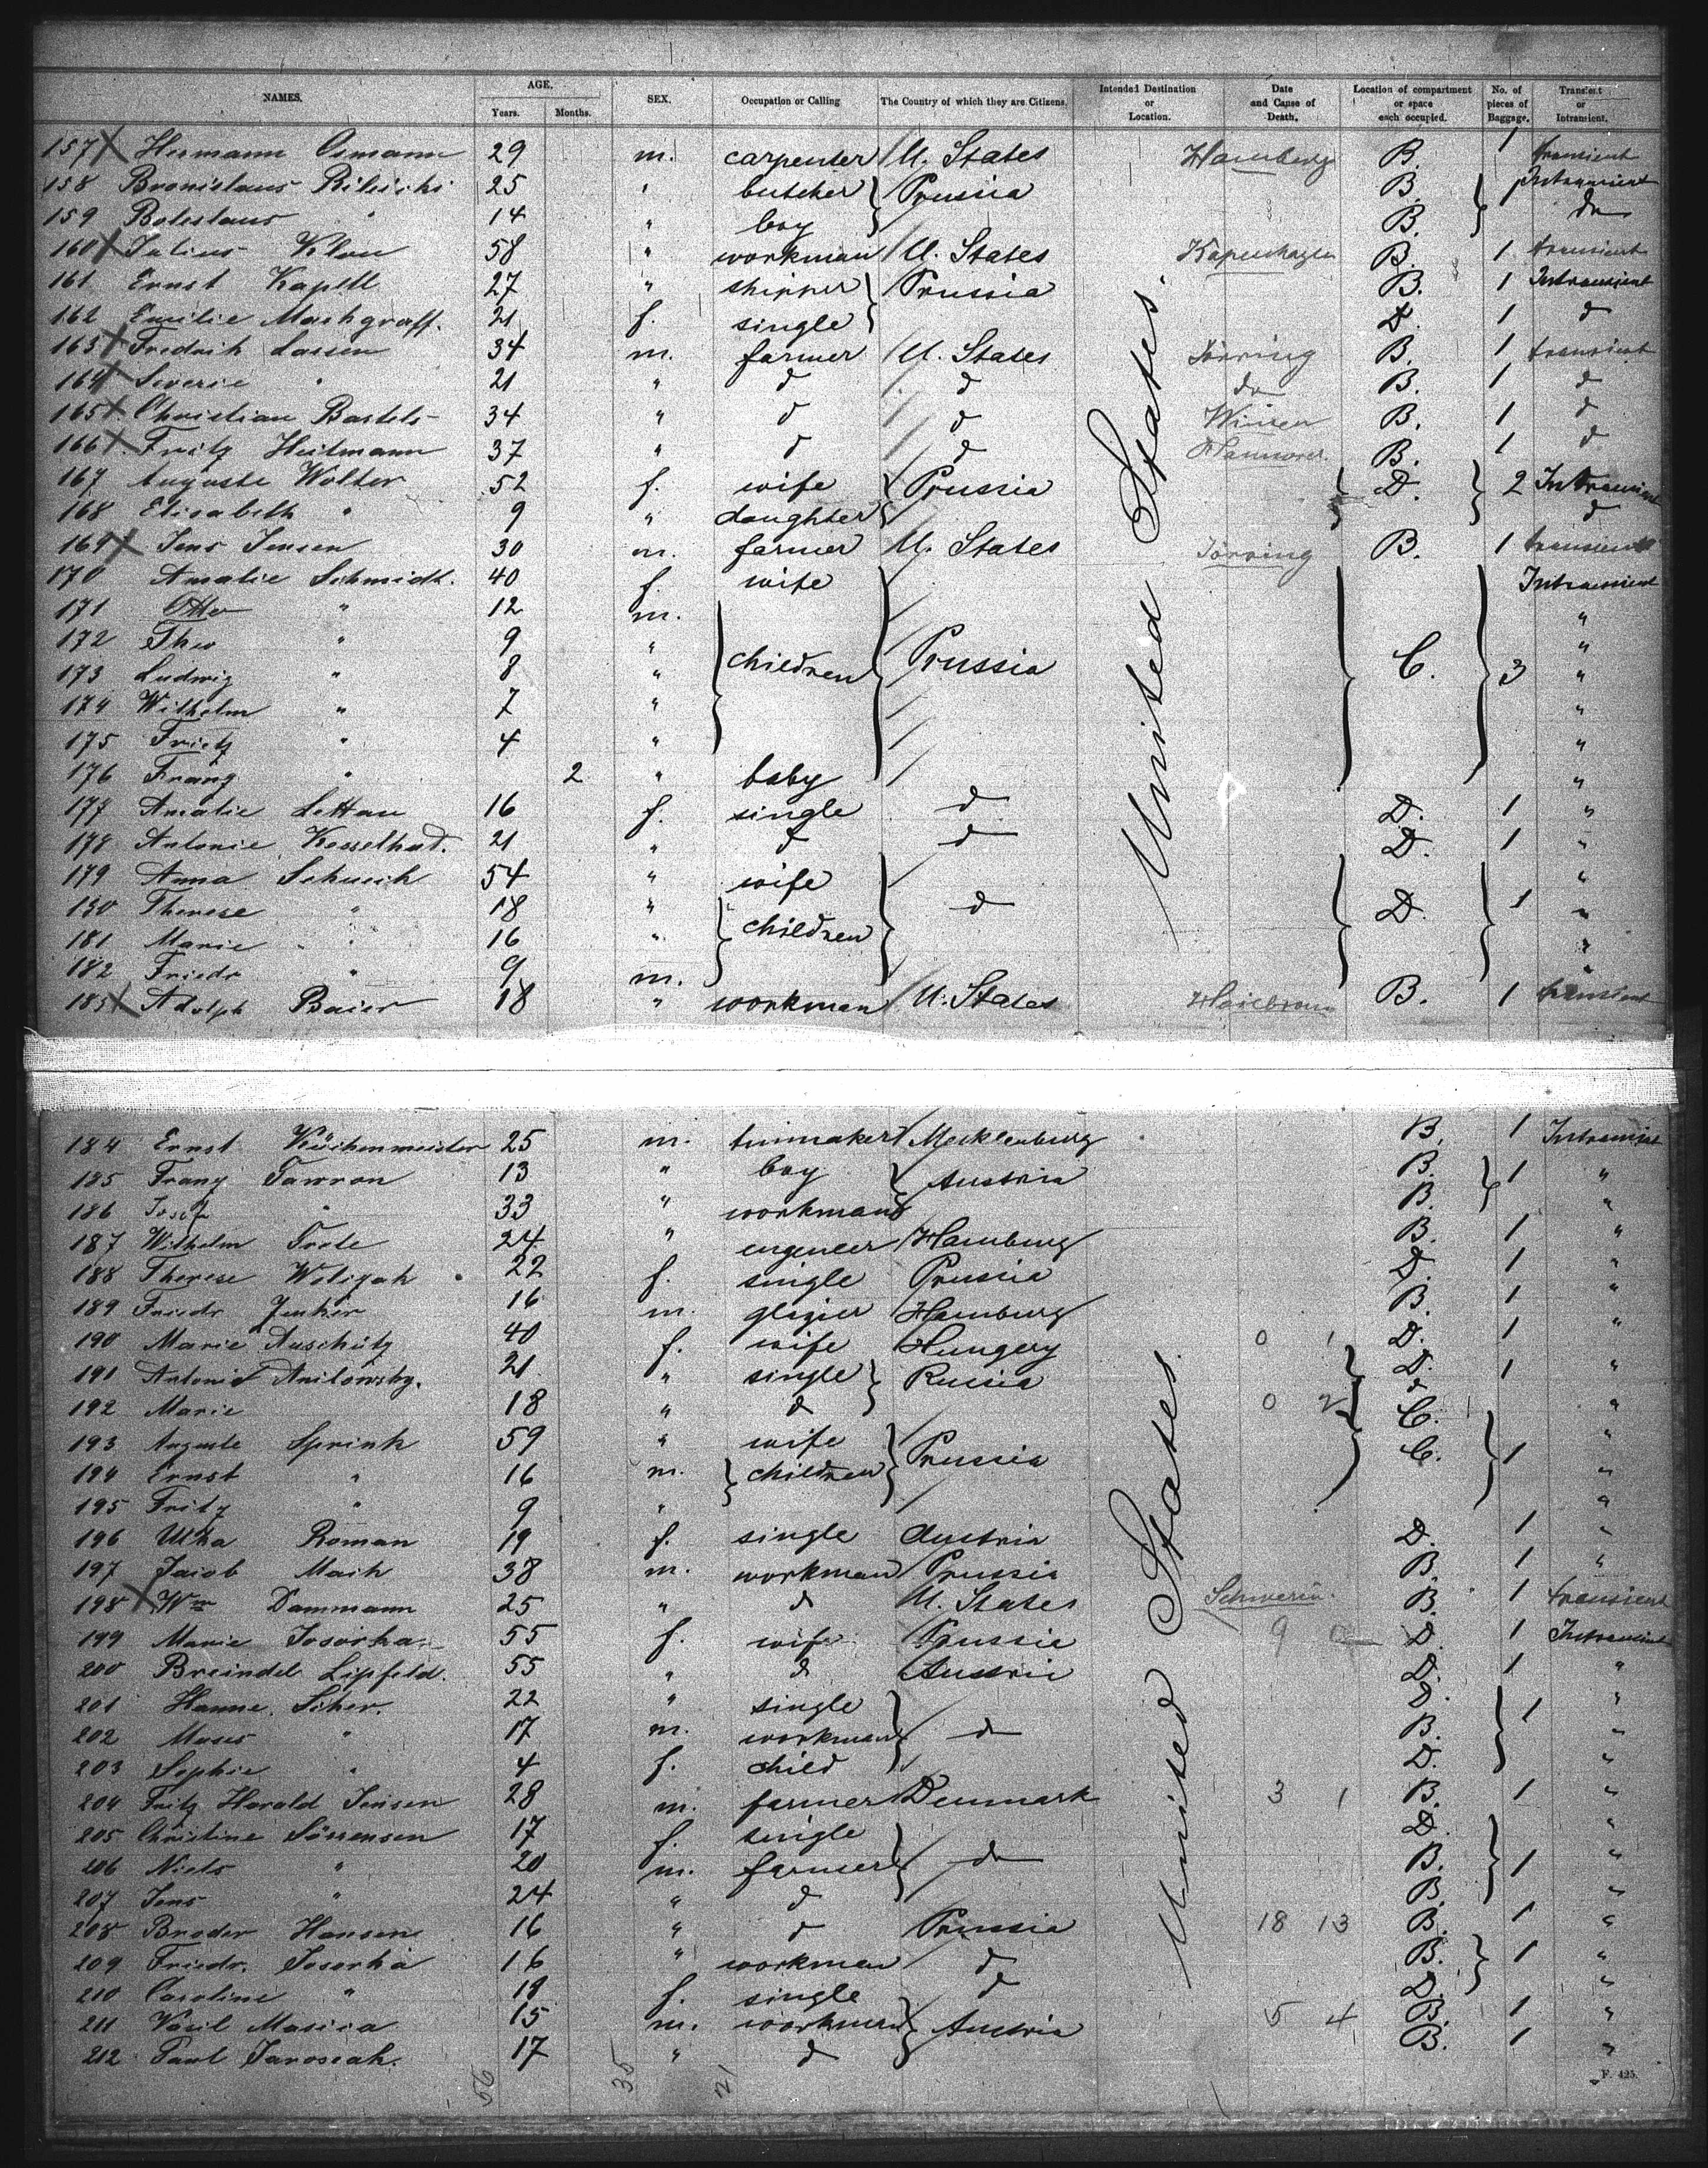 NAMES. AGE. Years. Months. SEX. Occupation or Calling The Country of which they are Citizens. Intended Destination or Location. Date and Cause of Death. Location of compartment or space each occupied. No. of pieces of Baggage. Transient or Intransient.
157 X Hermann 29 m. carpenter U. States Hamburg B. 1 transient
158 Bronislaus 25 " butcher Prussia B. 1 Intransient
159 Boleslaus " 14 " boy B. do
160 X Julius Klau 58 " workman U. States Kopenhagen B. 1 transient
161 Ernst 27 " shipper Prussia B. 1 Intransient
162 Emilie Machgraff. 21 f. single D. 1 d
163 X Fredrik Lassen 34 m. farmer U. States Förring B. 1 transient
164 X Severie " 21 " d d do B. 1 d
165 X Christian Bartels 34 " d d Winsen B. 1 d
166 X Fritz Heitmann 37 " d d Hannover. B. 1 d
167 Auguste Wolter 52 f. wife Prussia D. 2 Intransient
168 Elisabeth " 9 " daughter d
169 X Jens Jensen 30 m. farmer U. States Förring B. 1 transient
170 Amalie Schmidt. 40 f. wife Intransient
171 Otto " 12 m. "
172 Theo " 9 " "
173 Ludwig " 8 " children Prussia C. 3 "
174 Wilhelm " 7 " "
175 Fritz " 4 " "
176 Franz " 2 " baby "
177 Amalie Lettau 16 f. single d D. 1 "
178 Antonie 21 " d d D. 1 "
179 Anna 54 " wife "
180 Therese " 18 " children d D. 1 "
181 Marie " 16 " "
182 Friedr " 9 m. "
183 X Adolph Baier 18 " workman U. States B. 1 transient
United States.
184 Ernst Küchenmeister 25 m. Mecklenburg B. 1 Intransient
185 Franz Tawron 13 " boy Austria B. 1 "
186 Josef " 33 " workman B. "
187 Wilhelm 24 " engeneer Hamburg B. 1 "
188 Therese 22 f. single Prussia D. 1 "
189 Friedr Junker 16 m. glazier Hamburg B. 1 "
190 Marie Auschütz 40 f. wife Hungery 0 1 D. 1 "
191 Antonie 21 " single Russia D. 1 "
192 Marie 18 " d 0 2 d C. 1 "
193 Auguste Sprink 59 " wife Prussia C. 1 "
194 Ernst " 16 m. children "
195 Fritz " 9 " "
196 Roman 19 f. single Austria D. 1 "
197 Jacob Mach 38 m. workman Prussia B. 1 "
198 X Wm Dammann 25 " d U. States Schwerin. B. 1 transient
199 Marie 55 f. wife Prussia 9 0 D. 1 Intransient
200 Breindel Lipfeld. 55 " d Austria D. 1 "
201 Hanne Scher. 22 " single D. 1 "
202 Moses " 17 m. workman d B. "
203 Sophie " 4 f. child D. "
204 Fritz Harald Jensen 28 m. farmer Denmark 3 1 B. 1 "
205 Christine Sörrensen 17 f. single D. "
206 Niels " 20 m. farmer d B. 1 "
207 Jens " 24 " d B. "
208 Broder Hansen 16 " d Prussia 18 13 B. 1 "
209 Friedr. 16 " workman d B. 1 "
210 Caroline " 18 f. single d D. "
211 Wasil Masica 15 m. workman Austria 5 4 B. 1 "
212 Paul 17 " d B. 1 "
United States
56 35 21
F. 425.